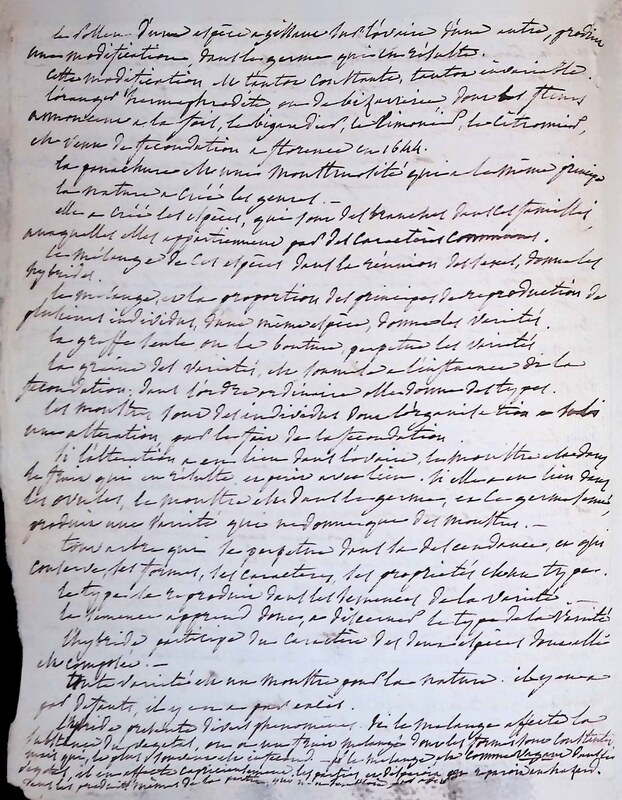 le pollen d'une espèce agissant sur l'ovaire d'une autre, produit
une modification, dans le germe qui en résulte.
Cette modification est tantôt constante, tantôt invariable.
l'oranger hermaphrodite, ou de bizarrerie dont les fleurs
annoncent à la fois, le bigaradier, le limonier, le citronier,
est venu de fécondation a florence en 1644.
la panachure est une monstruosité qui a le même principe
la nature a créé les genres. —
elle a créé les espèces, qui sont des branches dans les familles,
auxquelles elles appartiennent par des caractères communs.
le mélange de ces espèces dans la réunion des sexes, donne les
hybrides.
le mélange, et la proportion des principes de reproduction de
plusieurs individus, d'une même espèce, donne les variétés.
la greffe seule ou la bouture, perpetue les variétés
la graine des variétés, est soumise a l'influence de la
fécondation. dans l'ordre ordinaire elle donne des types.
les monstres sont des individus dont l'organisation a subi
une alteration, par le fait de la fécondation
si l'altération a eu lieu dans l'ovaire, le monstre est dans
le fruit qui en résulte, et périt avec lui. si elle a eu lieu dans
les ovules, le monstre est dans le germe, et le germe semé
produit une variété qui ne donne que des monstres. —
tout arbre qui se perpetue dans sa descendance, et qui
conserve, ses formes, ses caractères, ses propriétés est un type.
le type se reproduit dans les semences de la variété —
la semence apprend donc, a discerner le type de la variété
l'hybride participe du caractère des deux espèces dont elle
est composée. —
toute variété est un monstre pour la nature. il y en a
par défauts, il y en a par excès.
l'hybride présente divers phénomènes. si le mélange affecte la
substance du végétal, on a un franc mélangé dont les formes sont constantes
mais que, le plus souvent est infécond — si le mélange est dans
végétal, et en affecte capricieusement, les parties, et
dans les